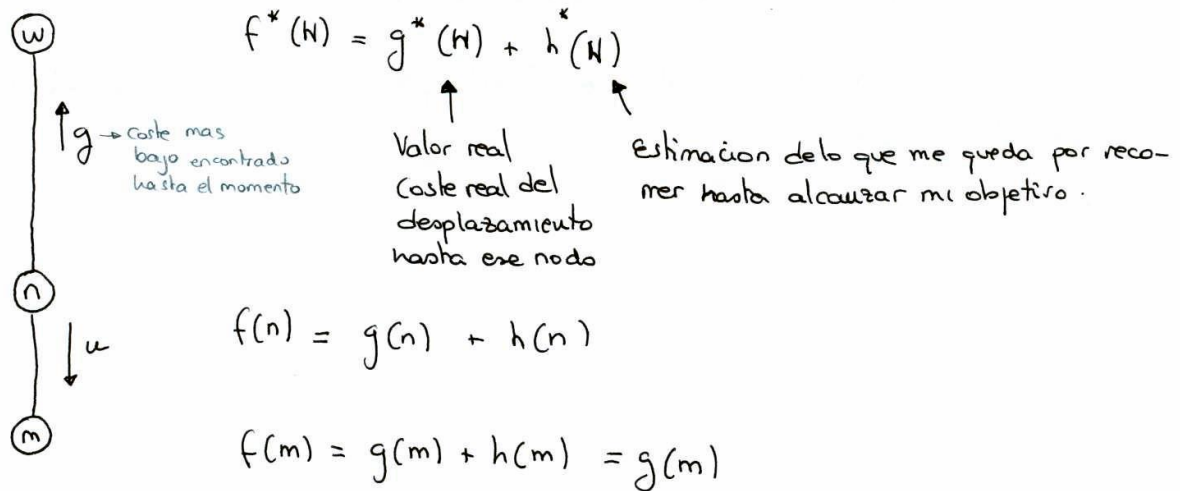 w
f*(N) = g*(N) + h*(N)
g → coste mas
bajo encontrado
hasta el momento
Valor real
Coste real del
desplazamiento
hasta ese nodo
Estimacion de lo que me queda por reco-
rrer hasta alcanzar mi objetivo.
n
f(n) = g(n) + h(n)
m
f(m) = g(m) + h(m) = g(m)